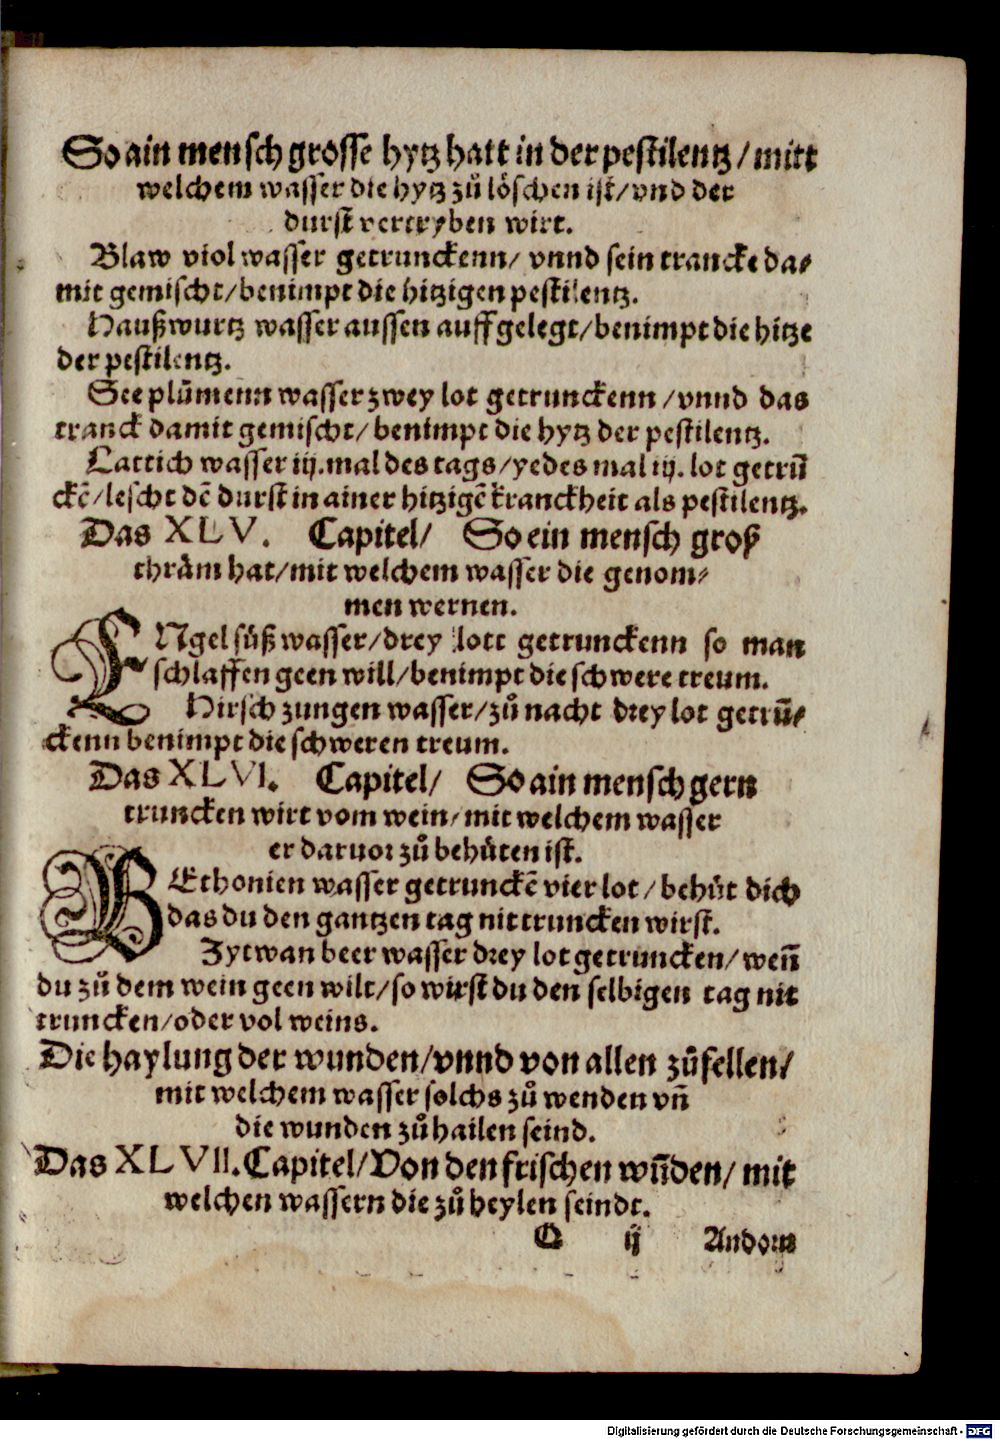 So ain mensch grosse hytz hatt in der pestilentz/ mitt
welchem wasser die hytz zů löschen ist/ vnd der
durst vertryben wirt.
Blaw viol wasser getrunckenn/ vnnd sein trancke da⸗
mit gemischt/ benimpt die hitzigen pestilentz.
Haußwurtz wasser aussen auff gelegt/ benimpt die hitze
der pestilentz.
See plůmenn wasser zwey lot getrunckenn/ vnnd das
tranck damit gemischt/ benimpt die hytz der pestilentz.
Lattich wasser iij. mal des tags/ yedes mal iij. lot getrũ
ckẽ/ lescht dẽ durst in ainer hitzigẽ kranckheit als pestilentz.
Das XLV. Capitel/ So ein mensch groß
thrăm hat/ mit welchem wasser die genom⸗
men wernen.
ENgelsůß wasser/ drey lott getrunckenn so man
schlaffen geen will/ benimpt die schwere treum.
Hirsch zungen wasser/ zů nacht drey lot getrũ⸗
ckenn benimpt die schweren treum.
Das XLVI. Capitel/ So ain mensch gern
truncken wirt vom wein/ mit welchem wasser
er daruor zů behůten ist.
BEthonien wasser getrunckẽ vier lot/ behůt dich
das du den gantzen tag nit truncken wirst.
Zytwan beer wasser drey lot getruncken/ weñ
du zů dem wein geen wilt/ so wirst du den selbigen tag nit
truncken/ oder vol weins.
Die haylung der wunden/ vnnd von allen zůfellen/
mit welchem wasser solchs zů wenden vñ
die wunden zů hailen seind.
Das XLVII. Capitel/ Von den frischen wũden/ mit
welchen wassern die zů heylen seindt.
O ij Andorn
Digitalisierung gefördert durch die Deutsche Forschungsgemeinschaft - DFG